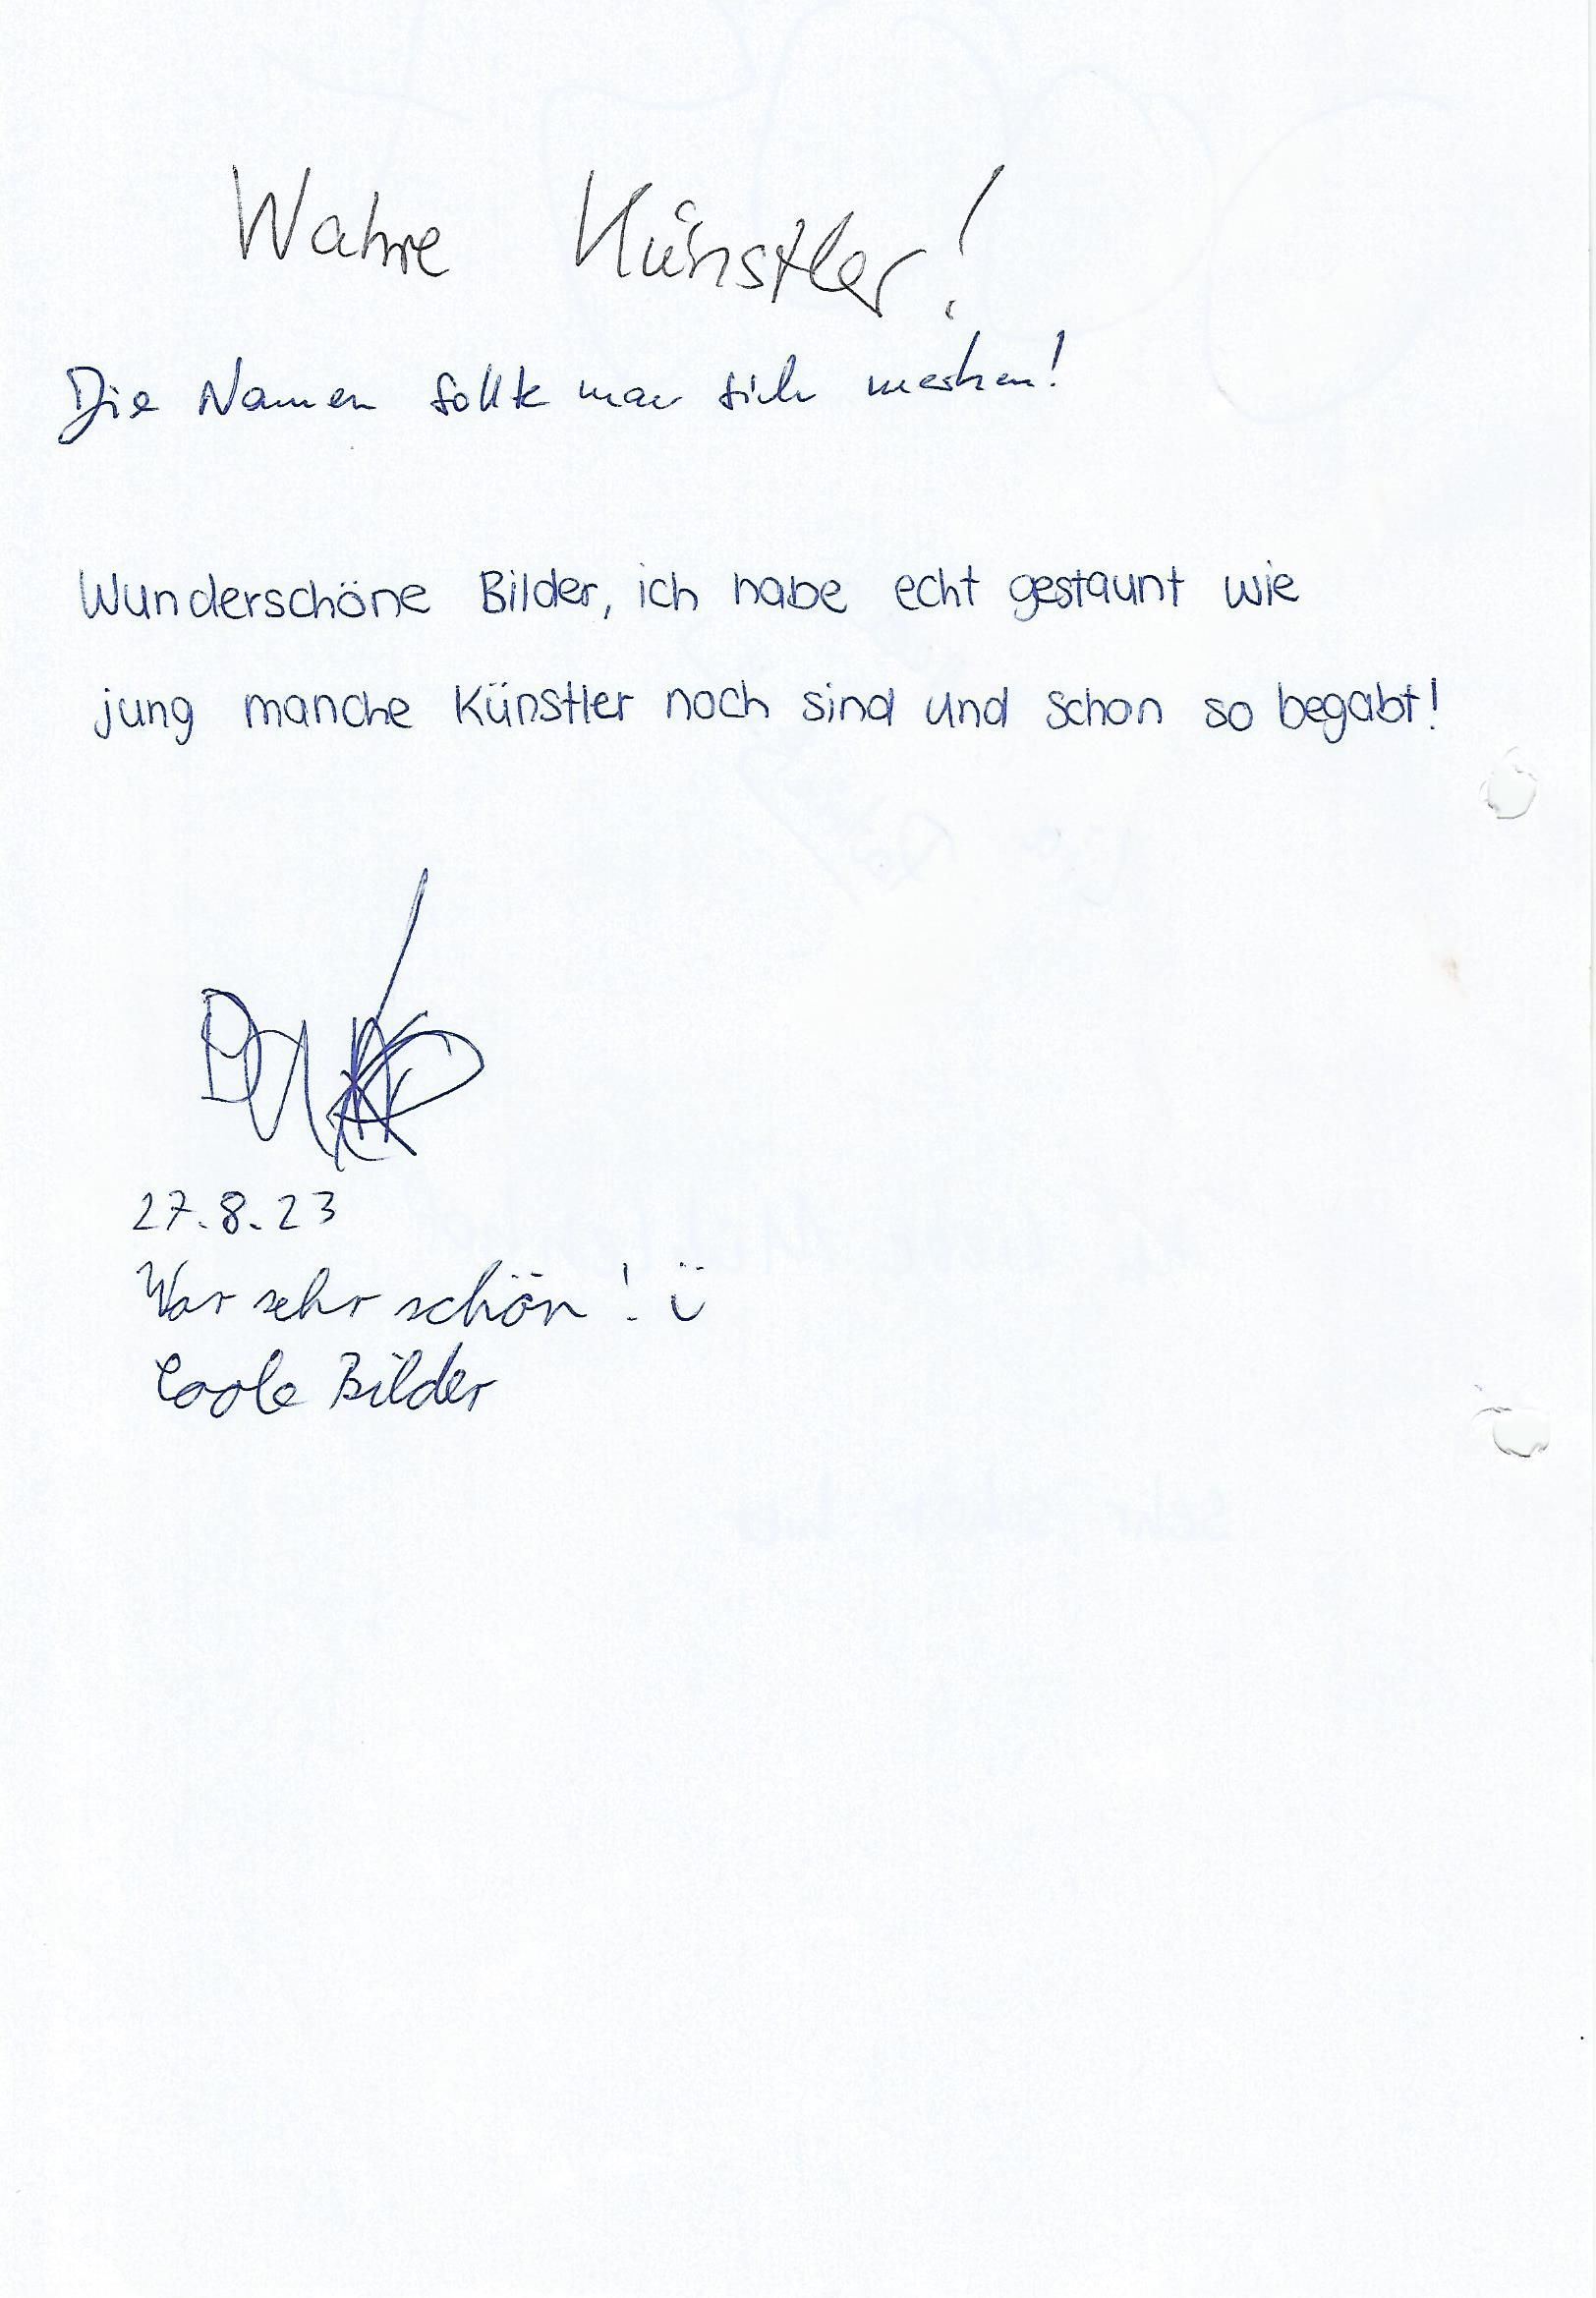 Wahre Künstler!
Die Namen sollte man sich merken!
Wunderschöne Bilder, ich habe echt gestaunt wie
jung manche Künstler noch sind und schon so begabt!
27.8.23
War sehr schön! ü
Coole Bilder